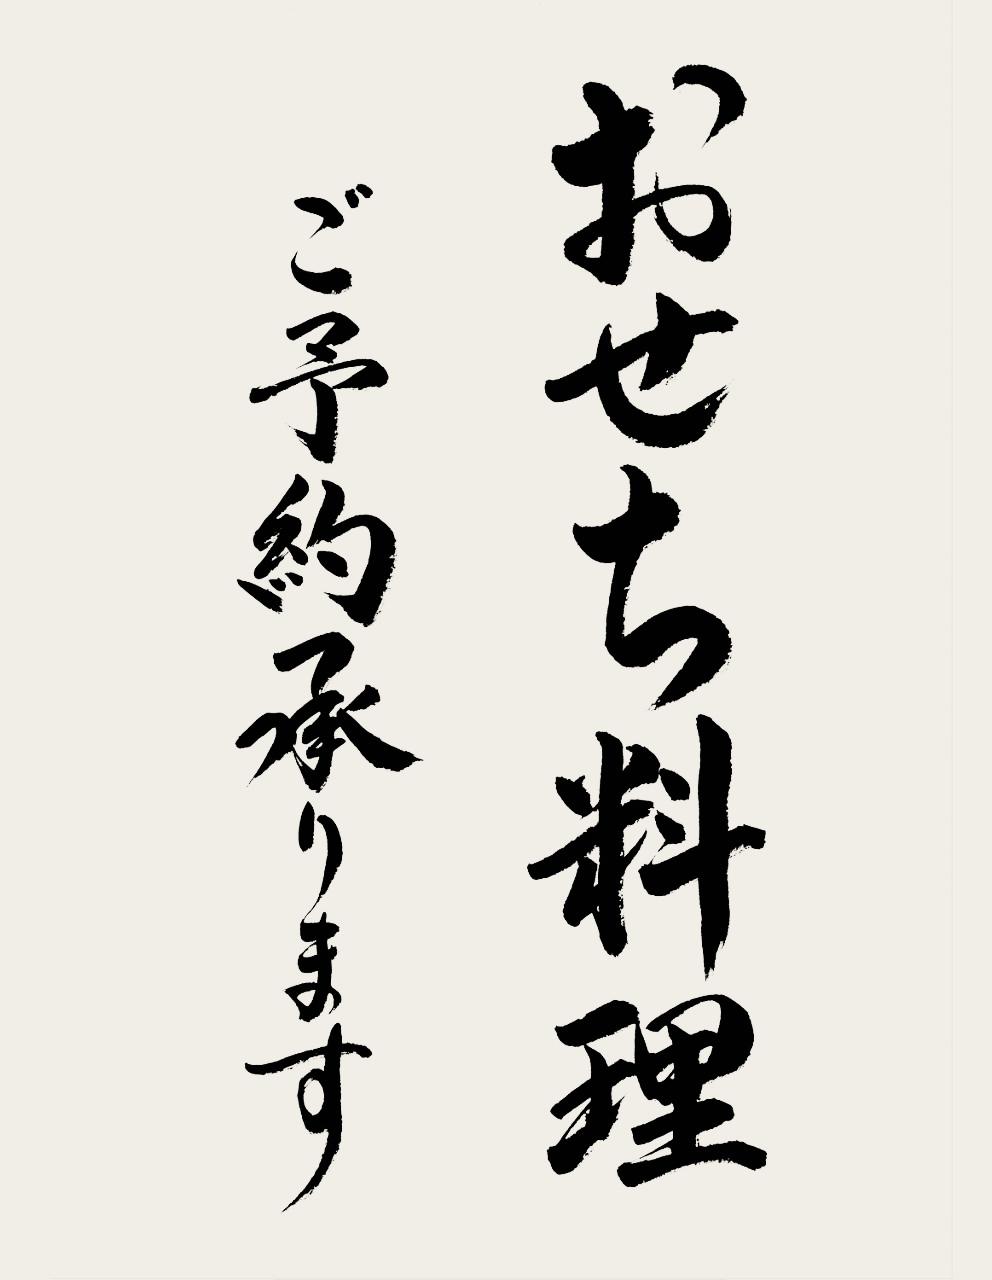 おせち料理
ご予約承ります